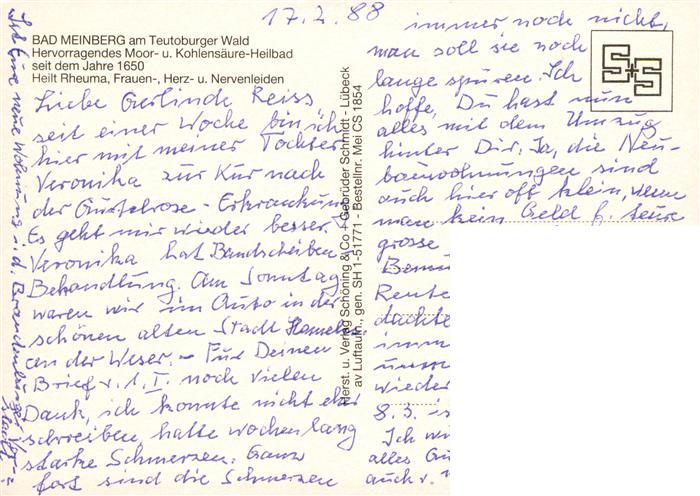 17.2.88
BAD MEINBERG am Teutoburger Wald
Hervorragendes Moor- u. Kohlensäure-Heilbad
seit dem Jahre 1650
Heilt Rheuma, Frauen-, Herz- u. Nervenleiden
Liebe Gerlinde Reiss
seit einer Woche bin ich
hier mit meiner Tochter
Veronika zur Kur nach
der Gürtelrose-Erkrankung
Es geht mir wieder besser.
Veronika hat Bandscheiben
Behandlung. Am Sonntag
waren wir im Auto in der
schönen alten Stadt Hameln
an der Weser. - Für Deinen
Brief v. 1.I. noch vielen
Dank, ich konnte nicht eher
schreiben, hatte wochenlang
starke Schmerzen. Ganz
fort sind die Schmerzen
immer noch nicht,
man soll sie noch
lange spüren. Ich
hoffe, Du hast nun
alles mit dem Umzug
hinter Dir. Ja, die Neu-
bauwohnungen sind
auch hier oft klein, wenn
man kein Geld f. teure
grosse
Rente
dachte
imm
wieder
8.3. is
Ich wü
alles Gu
auch v. 
Ist Eure neue Wohnung i. d. Brandenburger
Herst. u. Verlag Schöning & Co + Gebrüder Schmidt - Lübeck
av Luftaufn., gen. SH 1-51771 - Bestellnr. Mei CS 1854
S+S